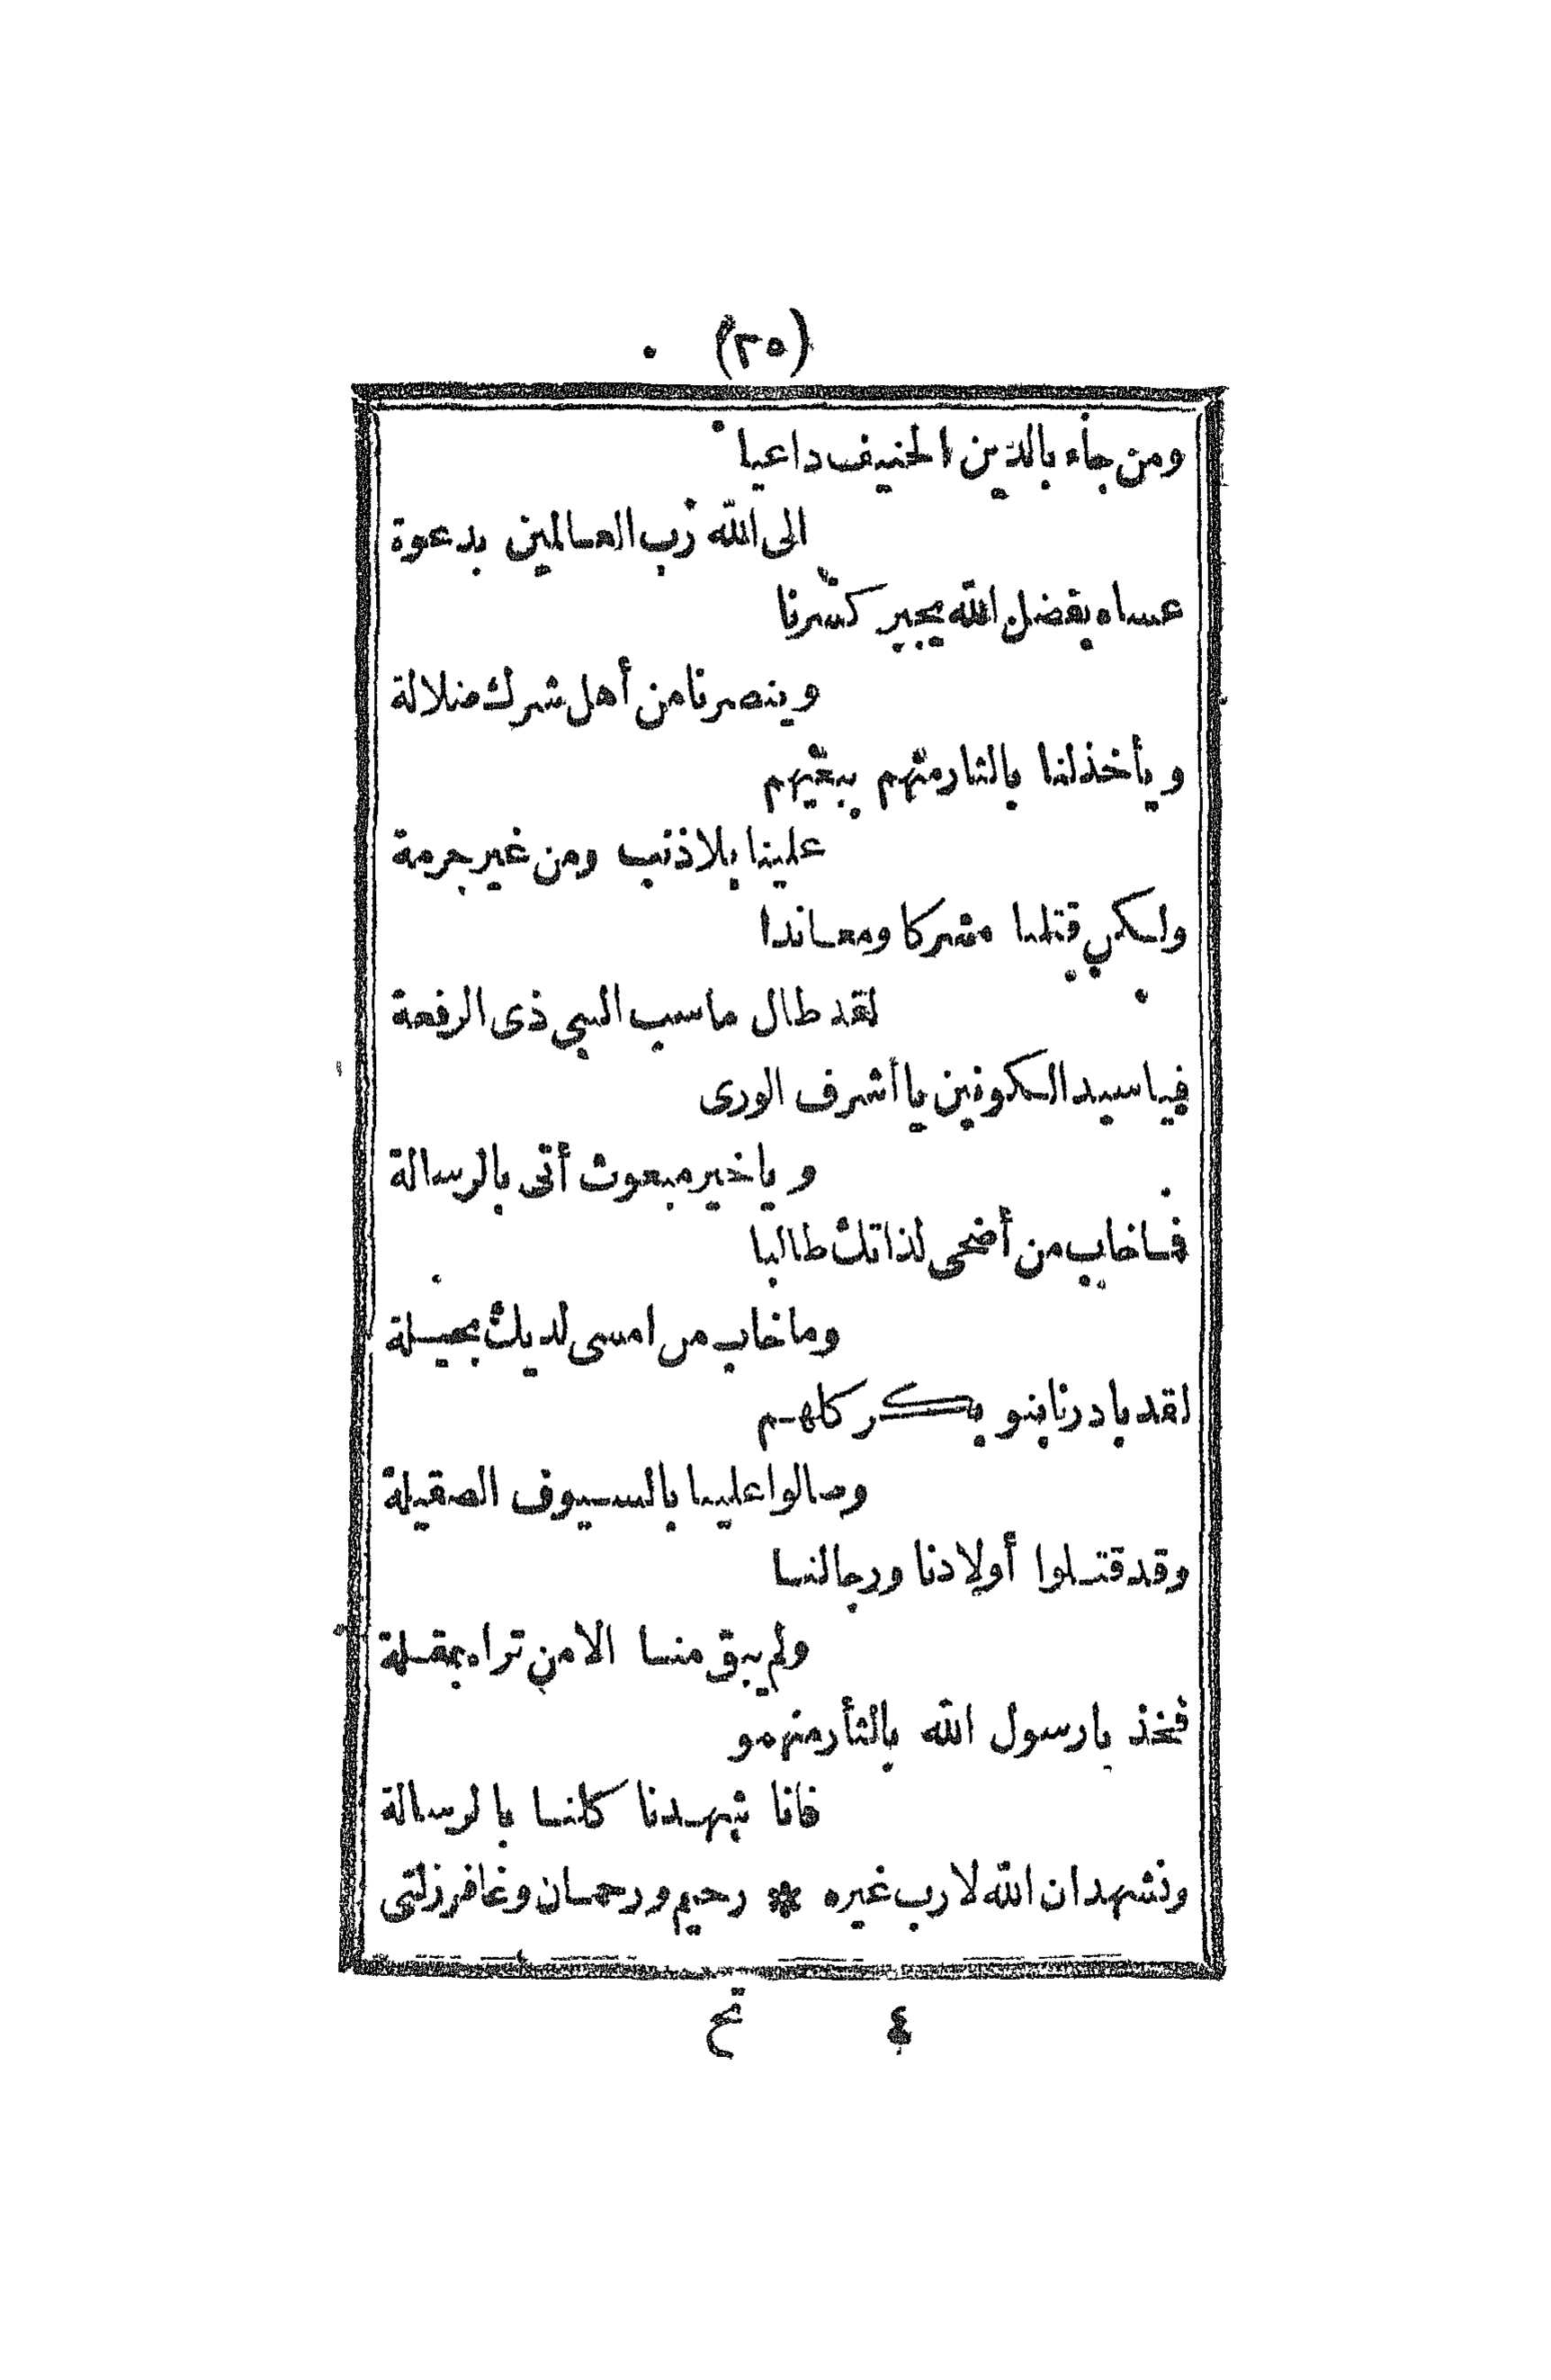 (٢٥)
ومن جاء بالدين الحنيف داعيا
الى الله رب العالمين بدعوة
عساه بفضل الله يجبر كسرنا
وينصرنا من أهل شرك ضلالة
ويأخذ لنا بالثار منهم ببغيهم
علينا بلا ذنب ومن غير جرمة
ولكن قتلنا مشركا ومعاندا
لقد طال ما سب النبي ذى الرفعة
فيا سيد الكونين يا أشرف الورى
ويا خير مبعوث أتى بالرسالة
فما خاب من أضحى لذاتك طالبا
وما خاب من امسى لديك بحيلة
لقد بادرنا بنو بكر كلهم
وصالوا علينا بالسيوف الصقيلة
وقد قتلوا أولادنا ورجالنا
ولم يبق منا الا من تراه بمقلة
فخذ يا رسول الله بالثأر منهمو
فانا شهدنا كلنا بالرسالة
ونشهد ان الله لا رب غيره * رحيم ورحمان وغافر زلتى
٤ تح